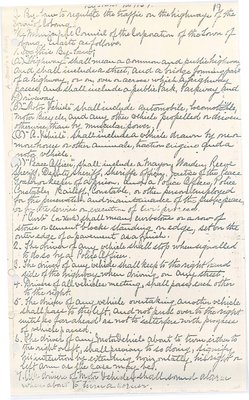 A By-law to regulate the traffic on the highways of the
The Municipal Council of the Corporation of the Town of
In this By-law
(a) Highway shall mean a common and public highway
and shall include a street, and a bridge forming part of
a highway, or on or
and shall include a public Park, Parkway and
Driveway.
(b) Motor Vehicle shall include automobile, locomobile,
motor bicycle, and any other vehicle propelled or driven
otherwise than by muscular power.
(c) A Vehicle shall include a vehicle drawn by one or
more horses or other animals, traction engines and a
motor vehicle.
(d) Peace Officer shall include a Mayor, Warden, Reeve
Sheriff, Deputy Sheriff, Sheriff's officer, Justice of the Peace
Police Officer, Police
Constable, Bailiff, Constable, or other person employed
for the preservation and maintenance of the public peace,
or for the service or execution of civil process.
Curb
stone or cement blocks standing on edge, set on the
outer edge of a pavement as a finish.
2. The driver of any vehicle shall stop when signalled
to do so by a Police Officer.
3. The driver of any vehicle shall keep to the right hand
side of the highway when driving on any street.
4. Drivers of all vehicles meeting, shall pass each other
to the right.
5. The driver of any vehicle overtaking another vehicle
shall pass to the left, and not pull over to the right
until so far ahead as not to interfere with progress
of vehicle passed.
6. The driver of any motor vehicle about to turn either to
the right or left, shall prior to so doing, signify
his intention by extending horizontally, his right or
left arm as the case may be.
7. The driver of motor vehicles shall sound alarm
when about to turn a corner.